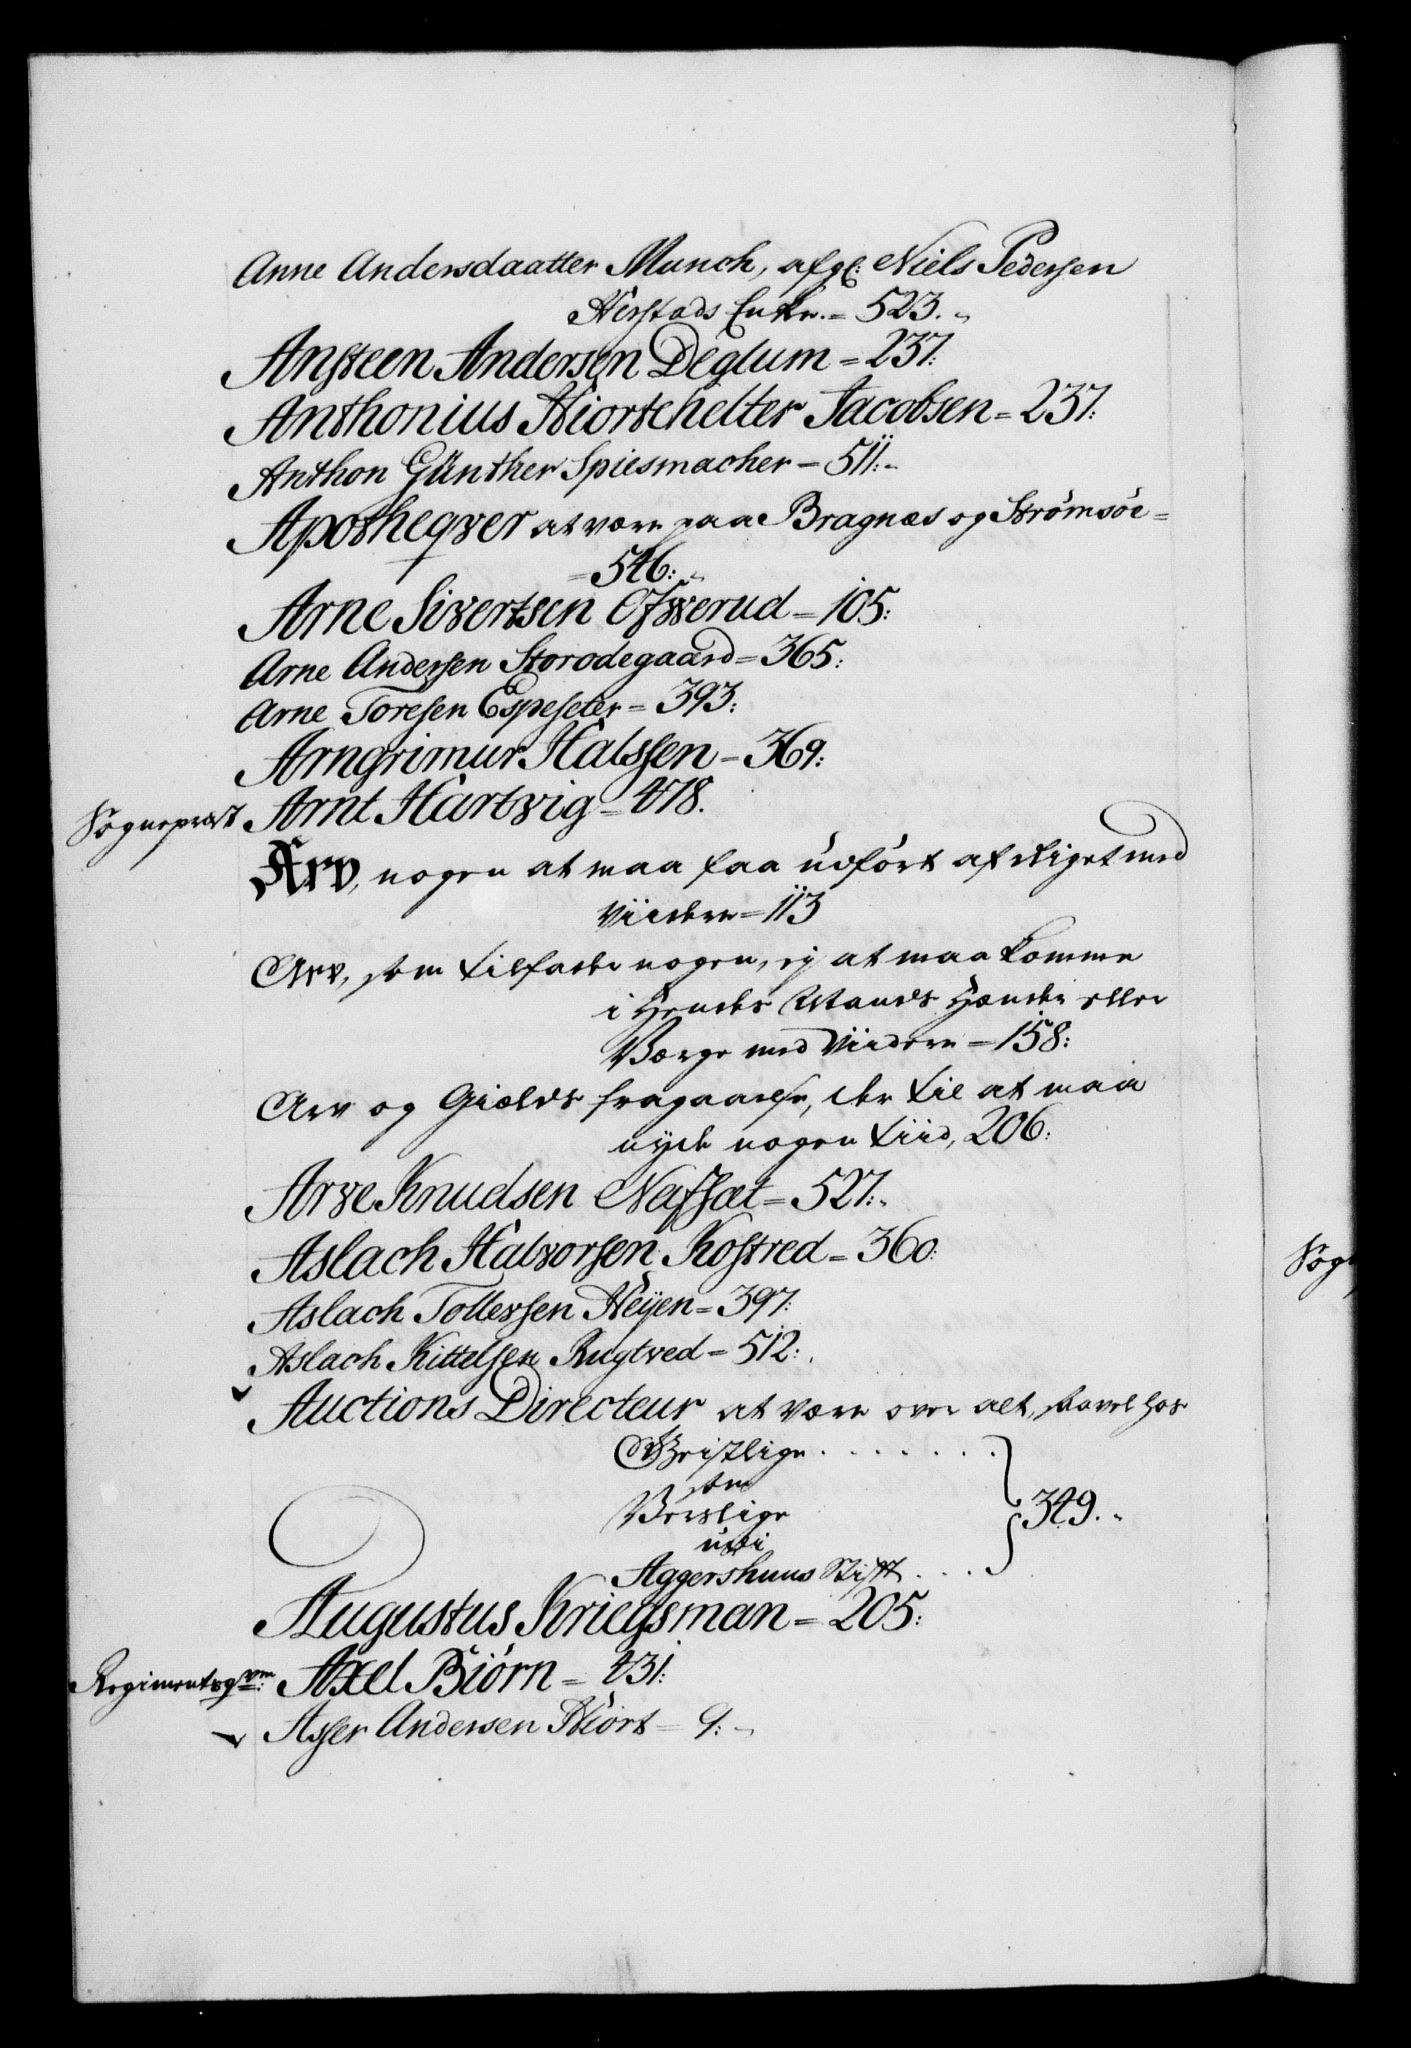 Anne Andersdaatter Munch, afgl: Niels Pedersen
Herstads Enke. = 523.
Ansteen Andersen Deglum = 237:
Anthonius Hiortehelter Jacobsen = 237:
Anthon Günther Spiesmacher = 511:
Apotheqver at være paa Bragnæs og Strømsöe =
= 546:
Arne Sivertsen Ofwerud = 105:
Arne Andersen Storodegaard = 365:
Arne Toresen Espeseter = 393:
Arngrimur Halssen = 369:
Sognepræst Arnt Hartvig = 478.
Arv, nogen at maa faa udført af Riget med
Viidere = 113
Arv, som tilfalde nogen, ej at maa komme
i Hendes Mands Hænder eller
Værge med Viidere = 158:
Arv og Gields fragaaelse, der til at maa
nyde nogen tiid, 206:
Arve Knudsen Nafsæt = 527:
Aslach Halvorsen Kostved = 360:
Aslach Tollefsen Heyen = 397:
Aslach Kittelsen Rugtved = 512:
Auctions Directeur at være over alt, saavel hos
Geistlige
som
Verslige
udi
Aggershuus Stift
349.
Augustus Kriegsman = 205:
Regimentsqvm: Axel Biörn = 431:
Asser Andersen Hiort = 9:
Sog